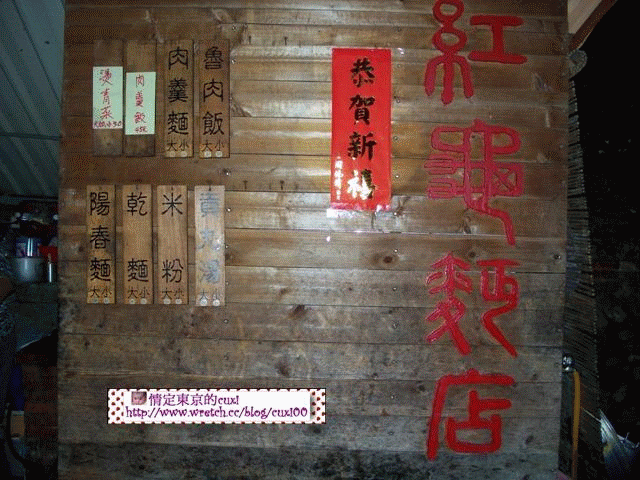 紅龜麪店
恭賀新禧
魯肉飯
大小
肉羹麵
大小
肉羹飯
燙青菜
貢丸湯
大小
米粉
大小
乾麵
大小
陽春麵
大小
情定東京的cuxl
http://www.wretch.cc/blog/cuxl00